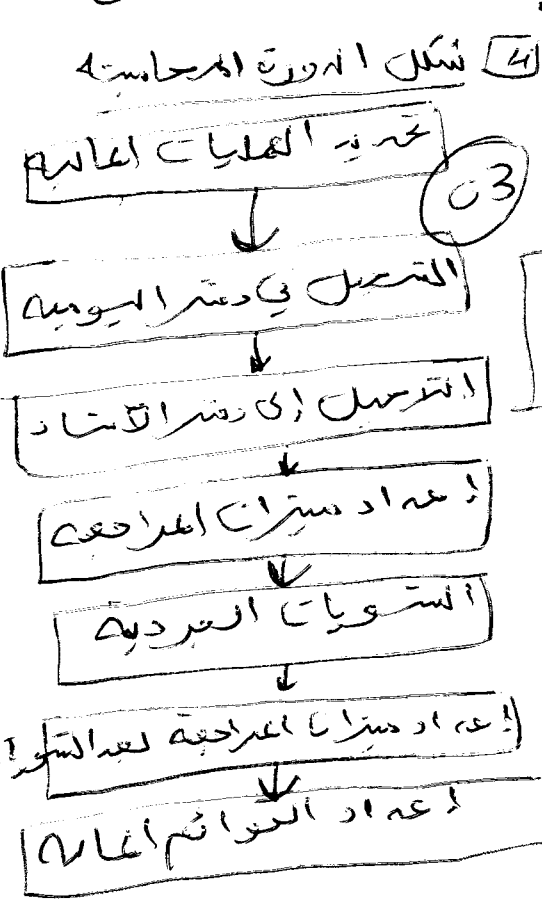 4 شكل الدورة المحاسبية
تحديد العمليات المالية
03
التسجيل في دفتر اليومية
الترحيل إلى دفتر الأستاذ
إعداد ميزان المراجعة
التسويات الجردية
إعداد ميزان المراجعة بعد التسويات
إعداد القوائم المالية